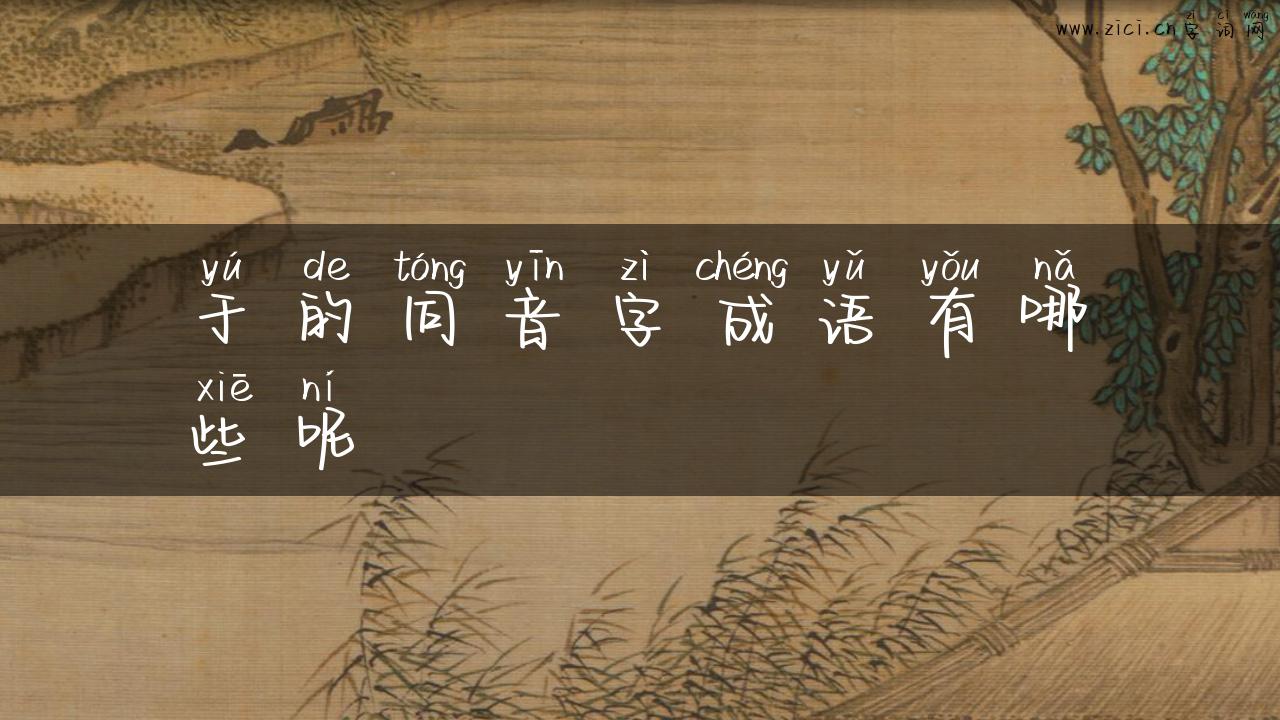 zì cí wǎng
www.zici.cn字词网
yú de tóng yīn zì chéng yǔ yǒu nǎ
于的同音字成语有哪
xiē ní
些呢